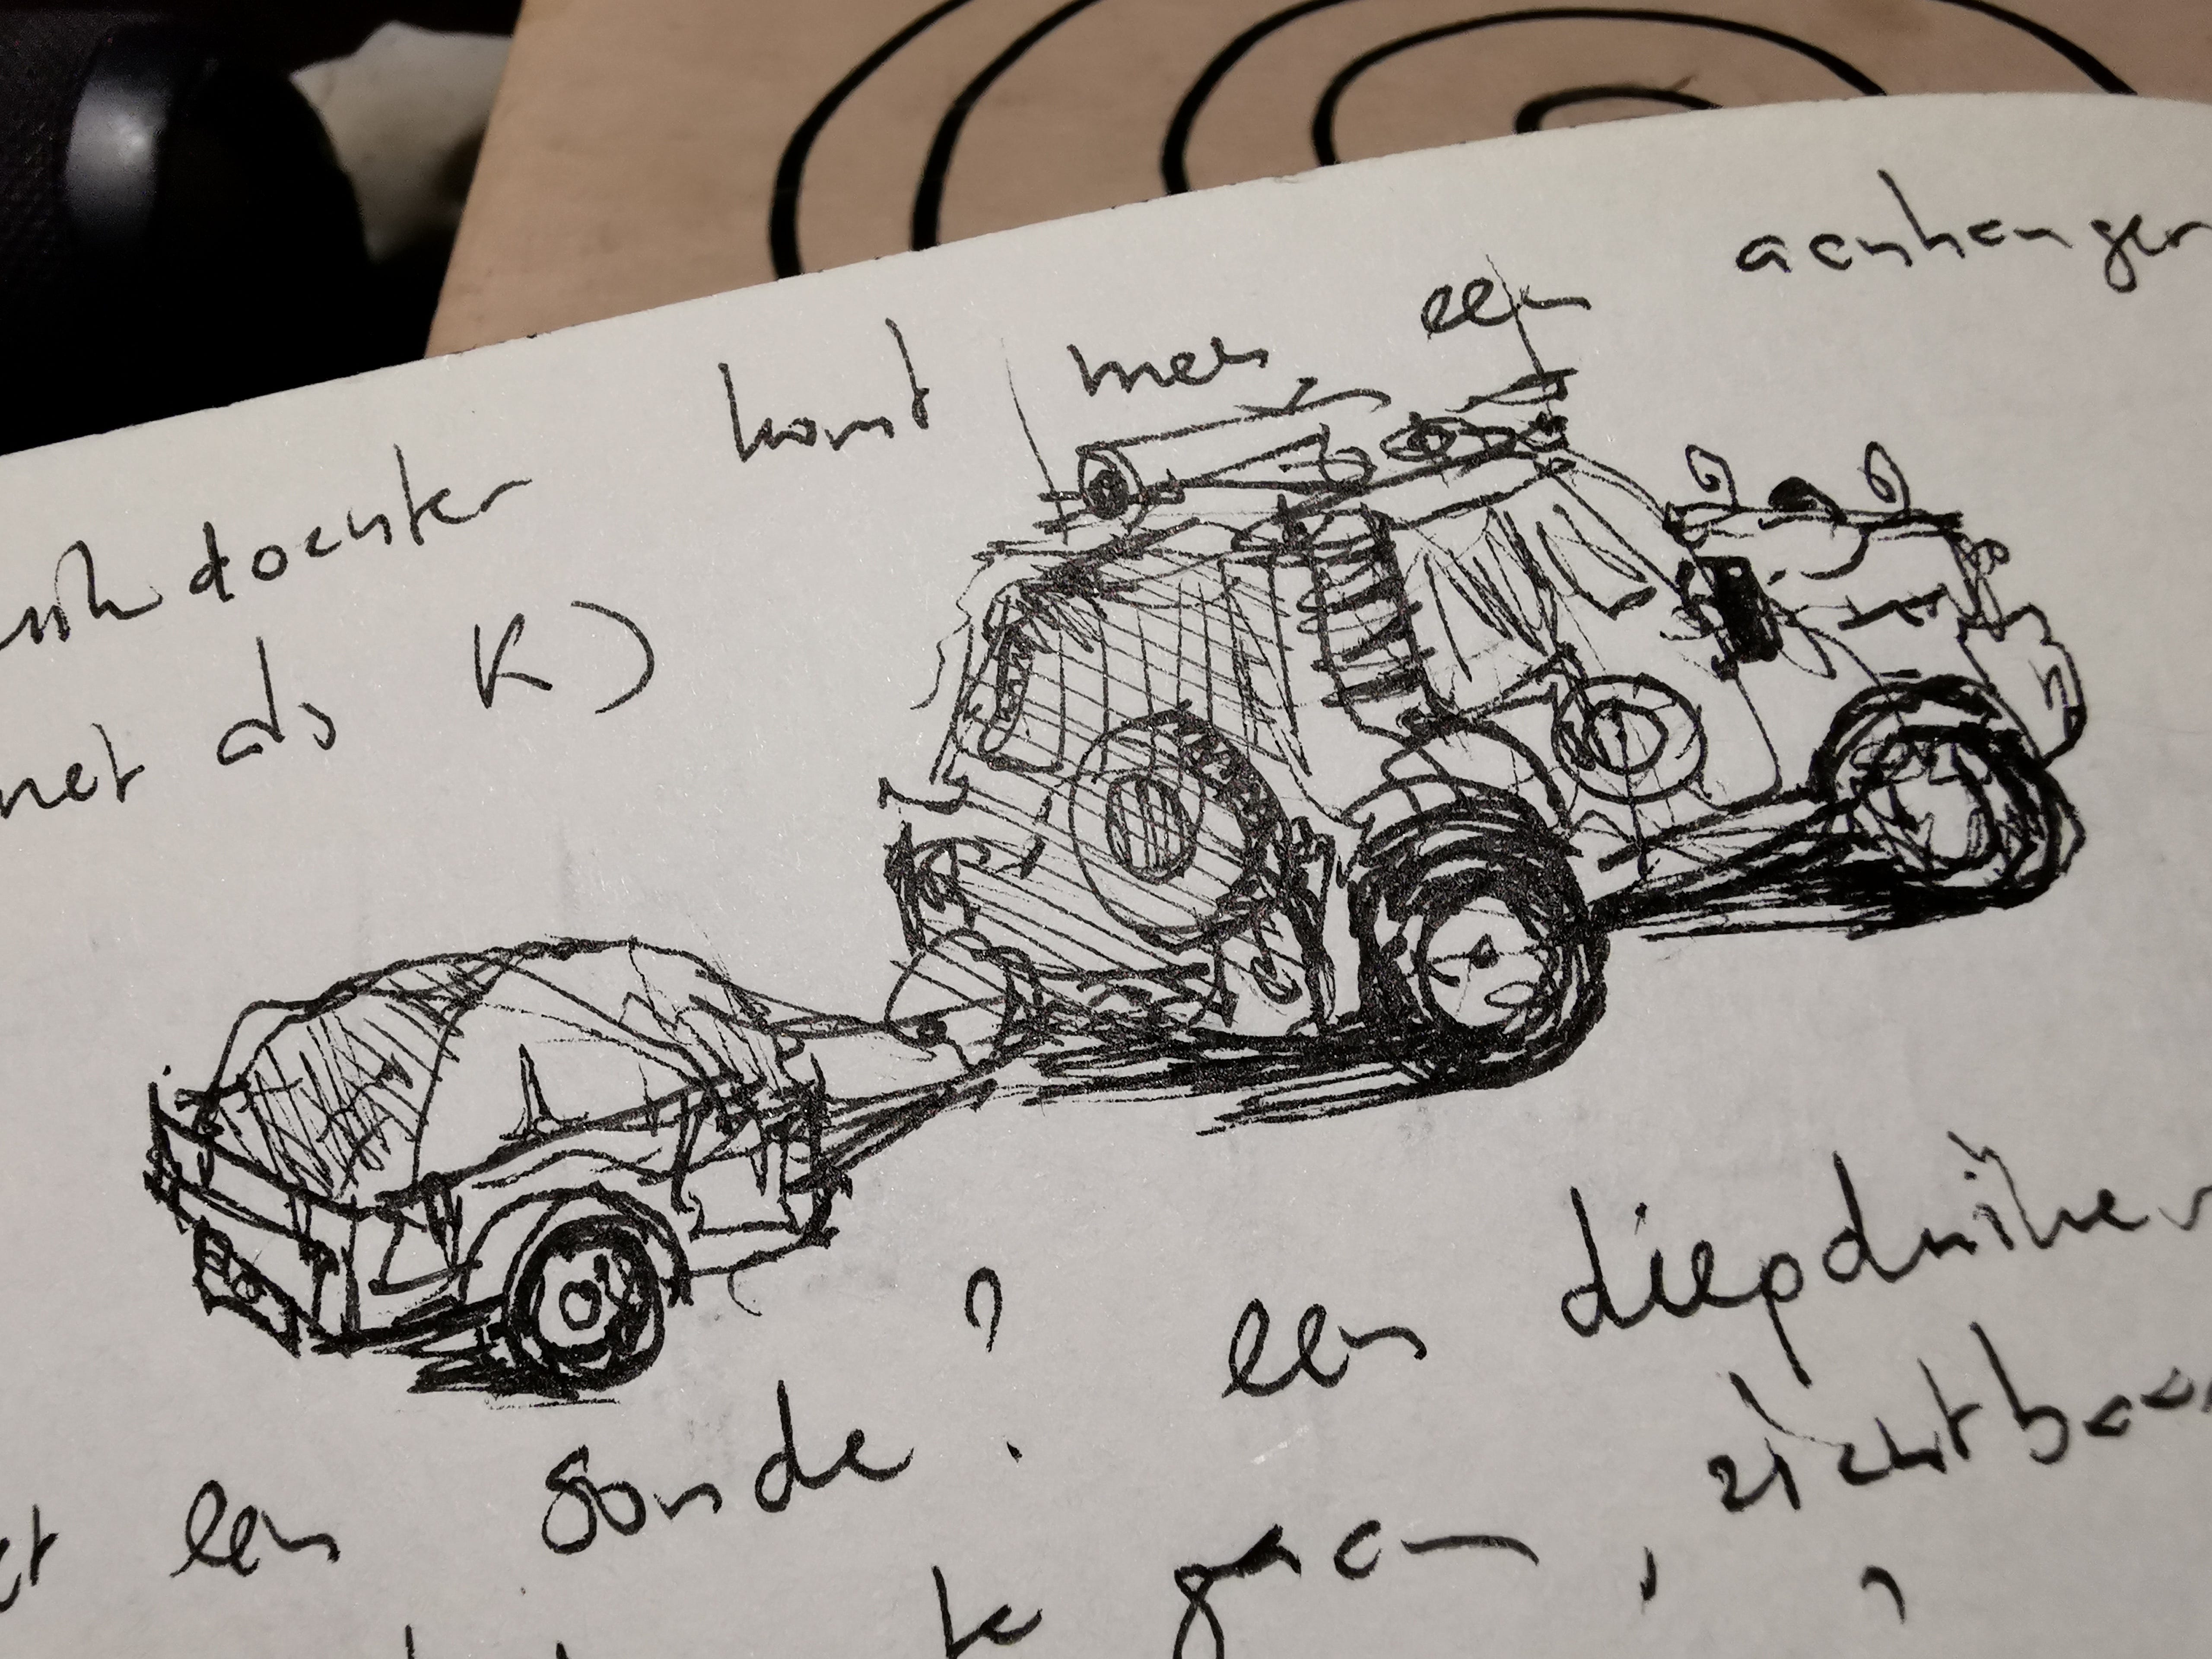 komt met een aanhanger
net als K)
een sonde? een diepduiker
te gaan, zichtbaar